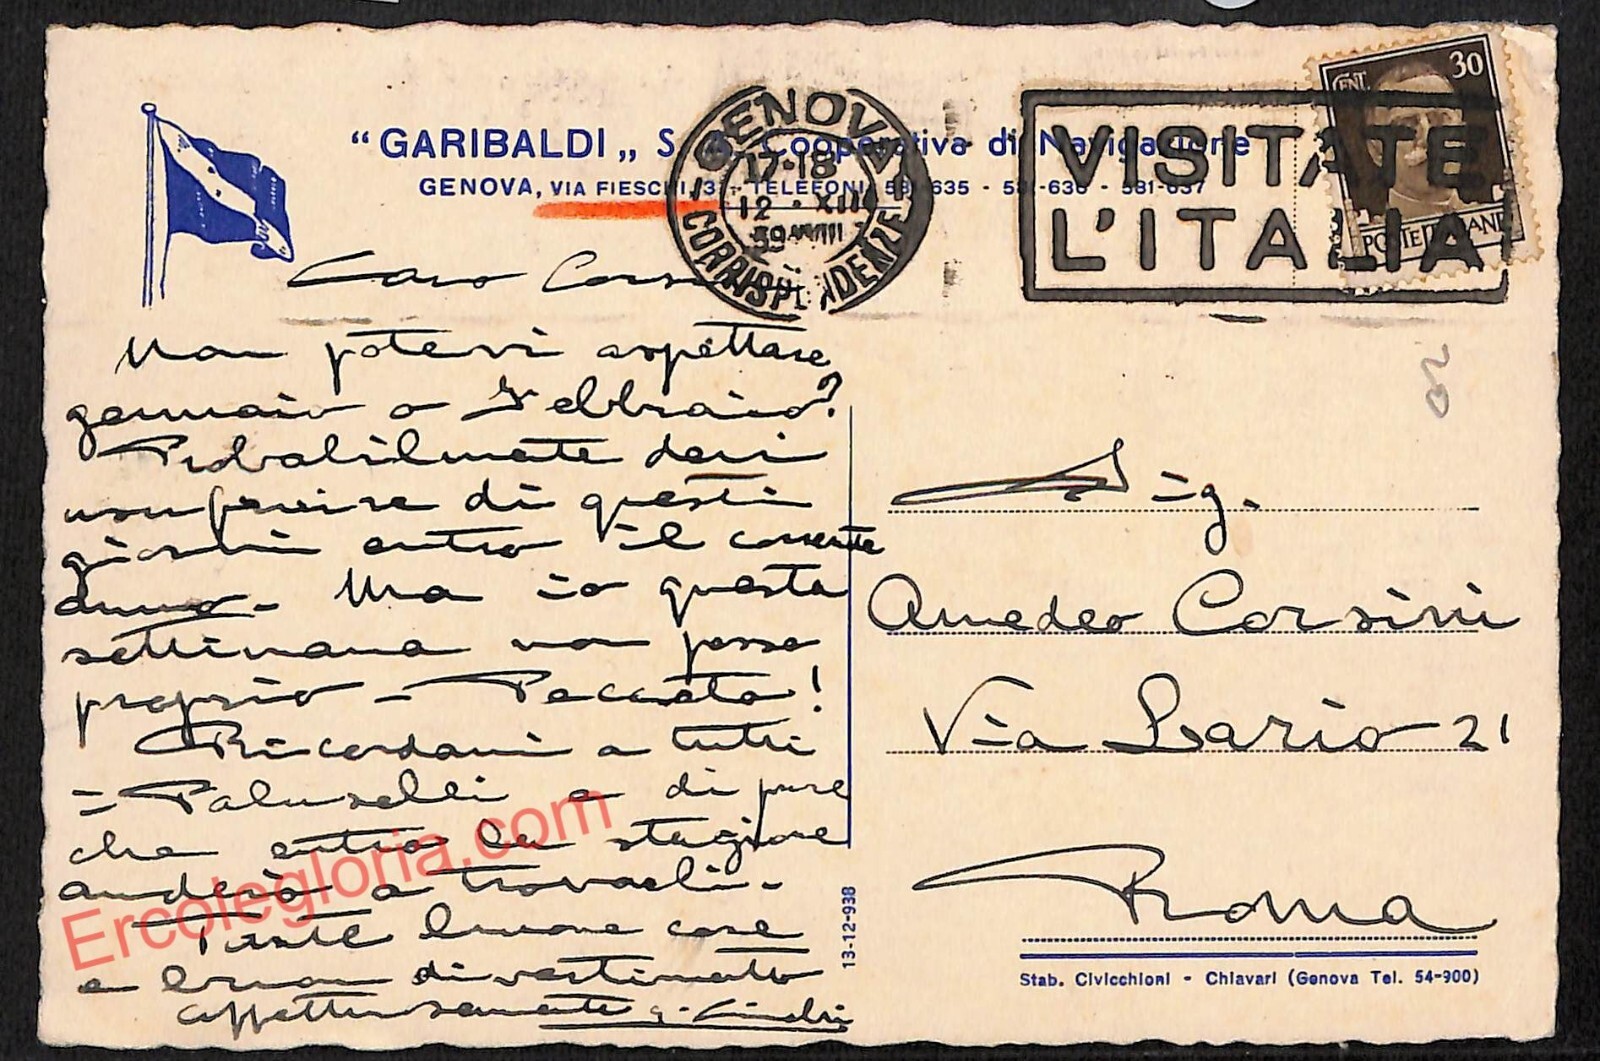 "GARIBALDI„ S. A. Cooperativa di Navigazione
GENOVA, VIA FIESCHI, 3 - TELEFONI 581-635 - 581-636 - 581-637
GENOVA
17-18
12 · XII
39 XVIII
CORRISPONDENZE
VISITATE
L'ITALIA
CENT. 30
POSTE ITALIANE
Caro Corsini
Non potevi aspettare
gennaio o Febbraio?
Probabilmente devi
usufruire di questi
giorni entro il corrente
anno - Ma io questa
settimana non posso
proprio - Peccato!
Ricordami a tutti
i Paluselli e di pure
che entro la stagione
andrò a trovarli -
Tante buone cose
e buon divertimento
affettuosamente
13-12-938
Sig.
Amedeo Corsini
Via Lario 21
Roma
Stab. Civicchioni - Chiavari (Genova Tel. 54-900)
Ercolegloria.com